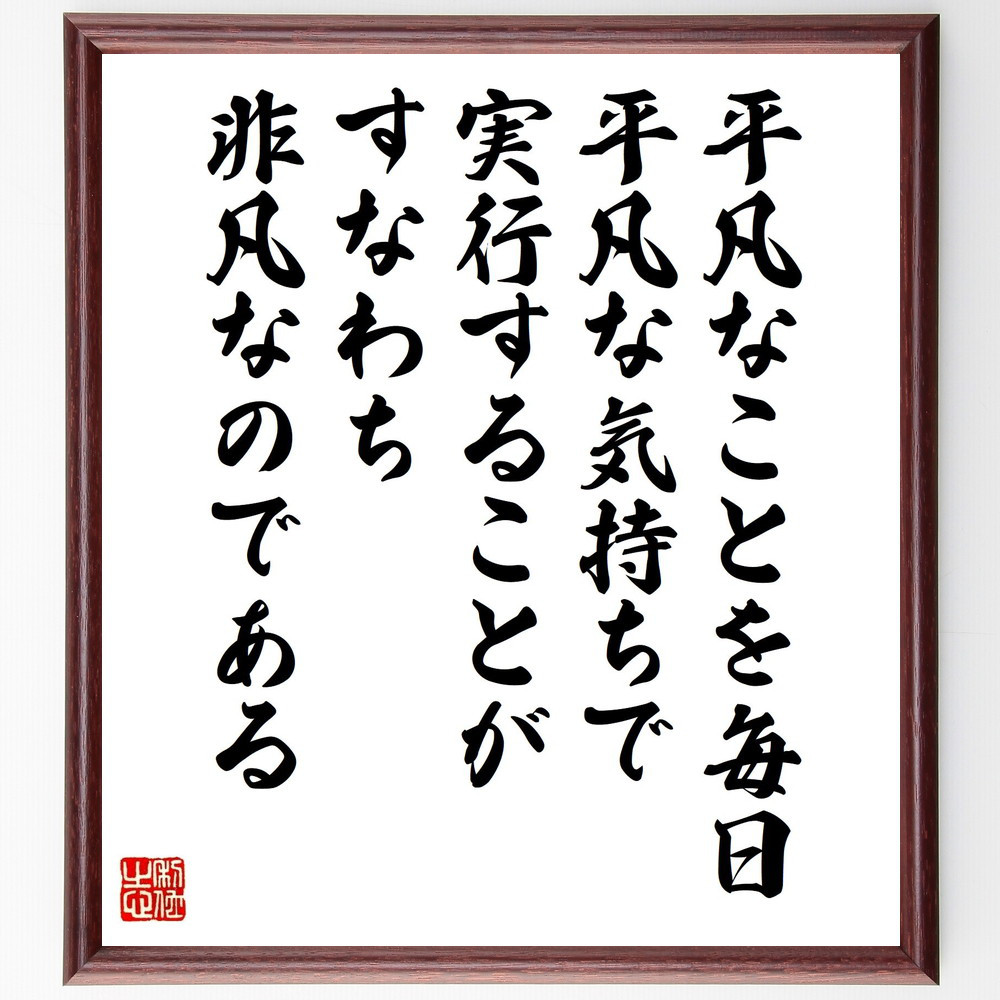 平凡なことを毎日
平凡な気持ちで
実行することが
すなわち
非凡なのである